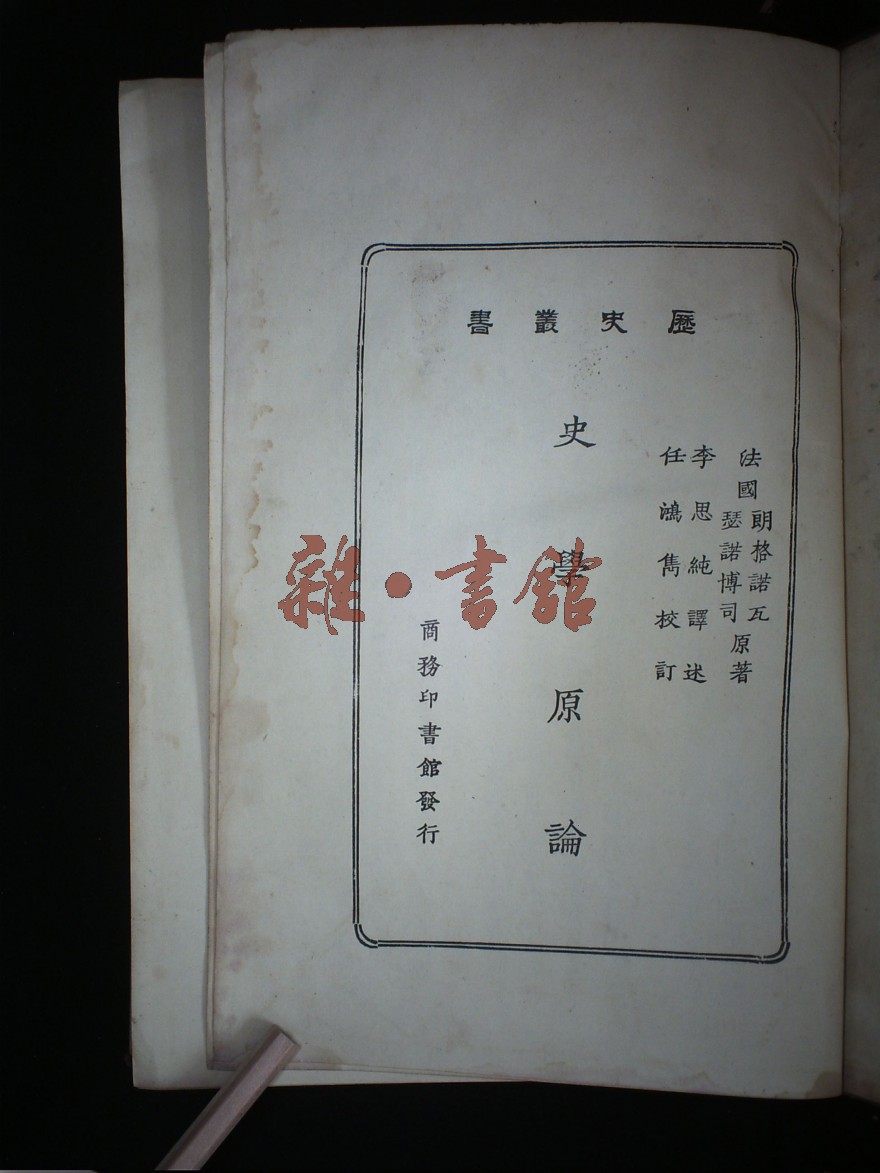 歷史叢書
法國
朗格諾瓦
瑟諾博司
原著
李思純譯述
任鴻雋校訂
史學原論
商務印書館發行
雜·書館